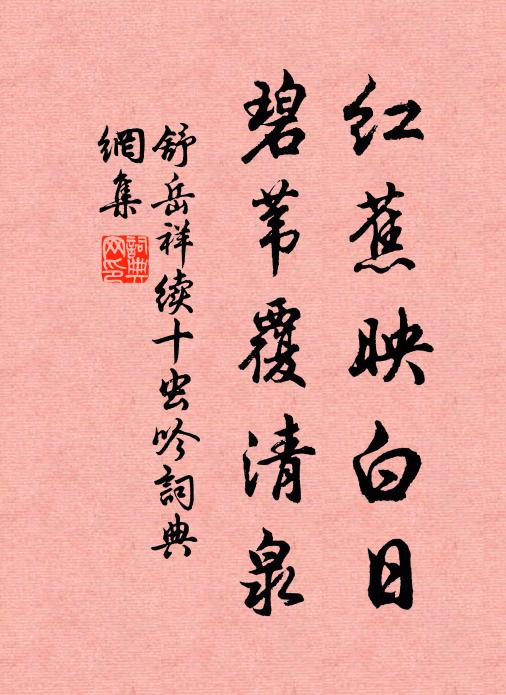 红蕉映白日
碧苇覆清泉
舒岳祥续十虫吟词典
網集
詞典網印